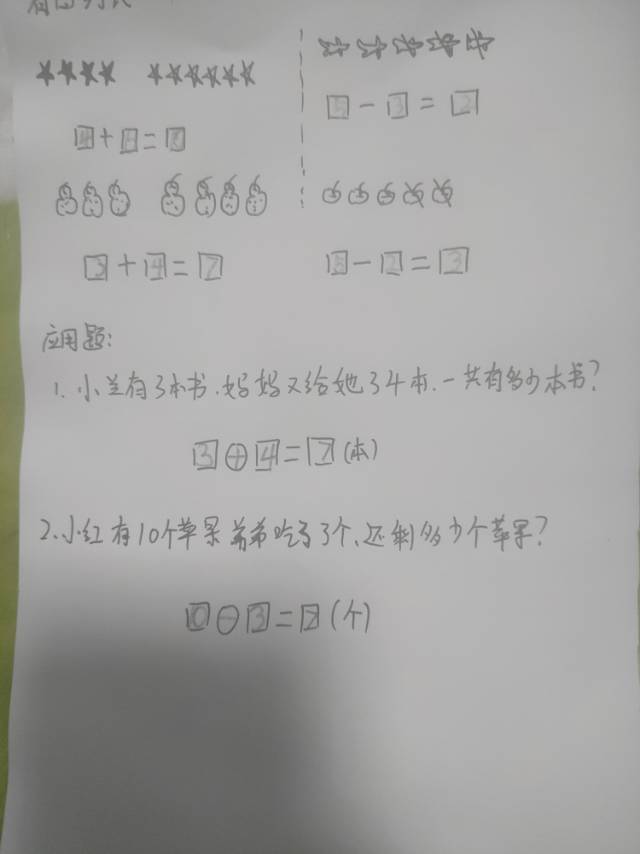 看图列式
5 - 3 = 2
4 + 6 = 10
3 + 4 = 7
5 - 2 = 3
应用题:
1. 小兰有3本书,妈妈又给她了4本,一共有多少本书?
3 + 4 = 7 (本)
2. 小红有10个苹果 弟弟吃了3个,还剩多少个苹果?
10 - 3 = 7 (个)